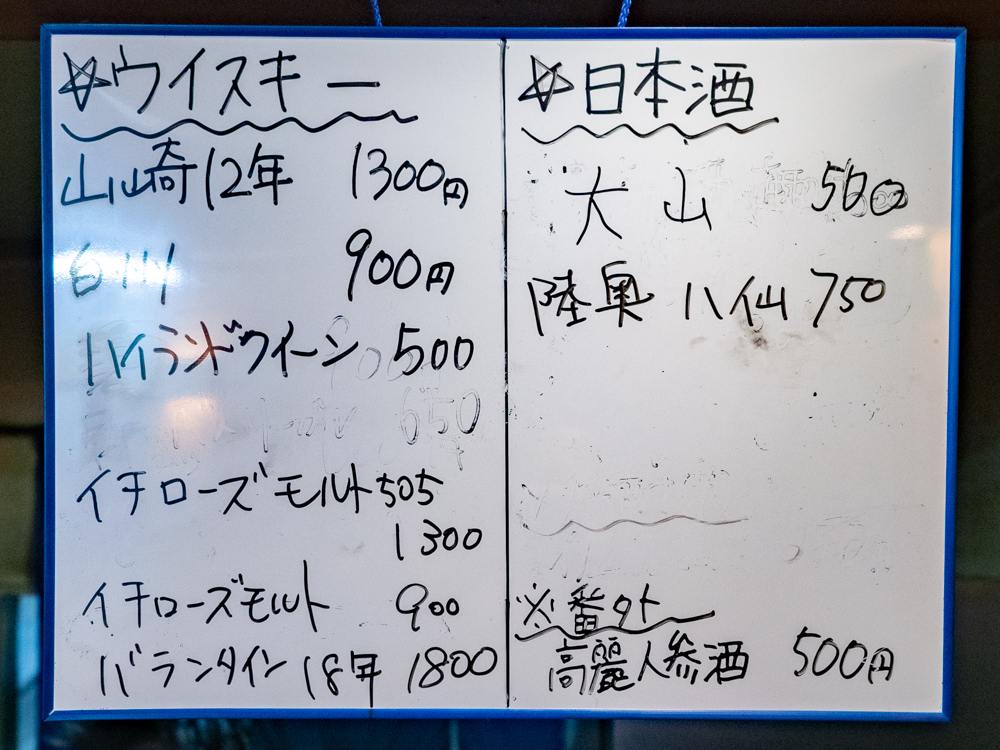 ☆ウイスキー
山崎12年 1300円
白州 900円
ハイランドクイーン 500
650
イチローズモルト505
1300
イチローズモルト 900
バランタイン 18年 1800
☆日本酒
大山 500
陸奥 八仙 750
※番外
高麗人参酒 500円